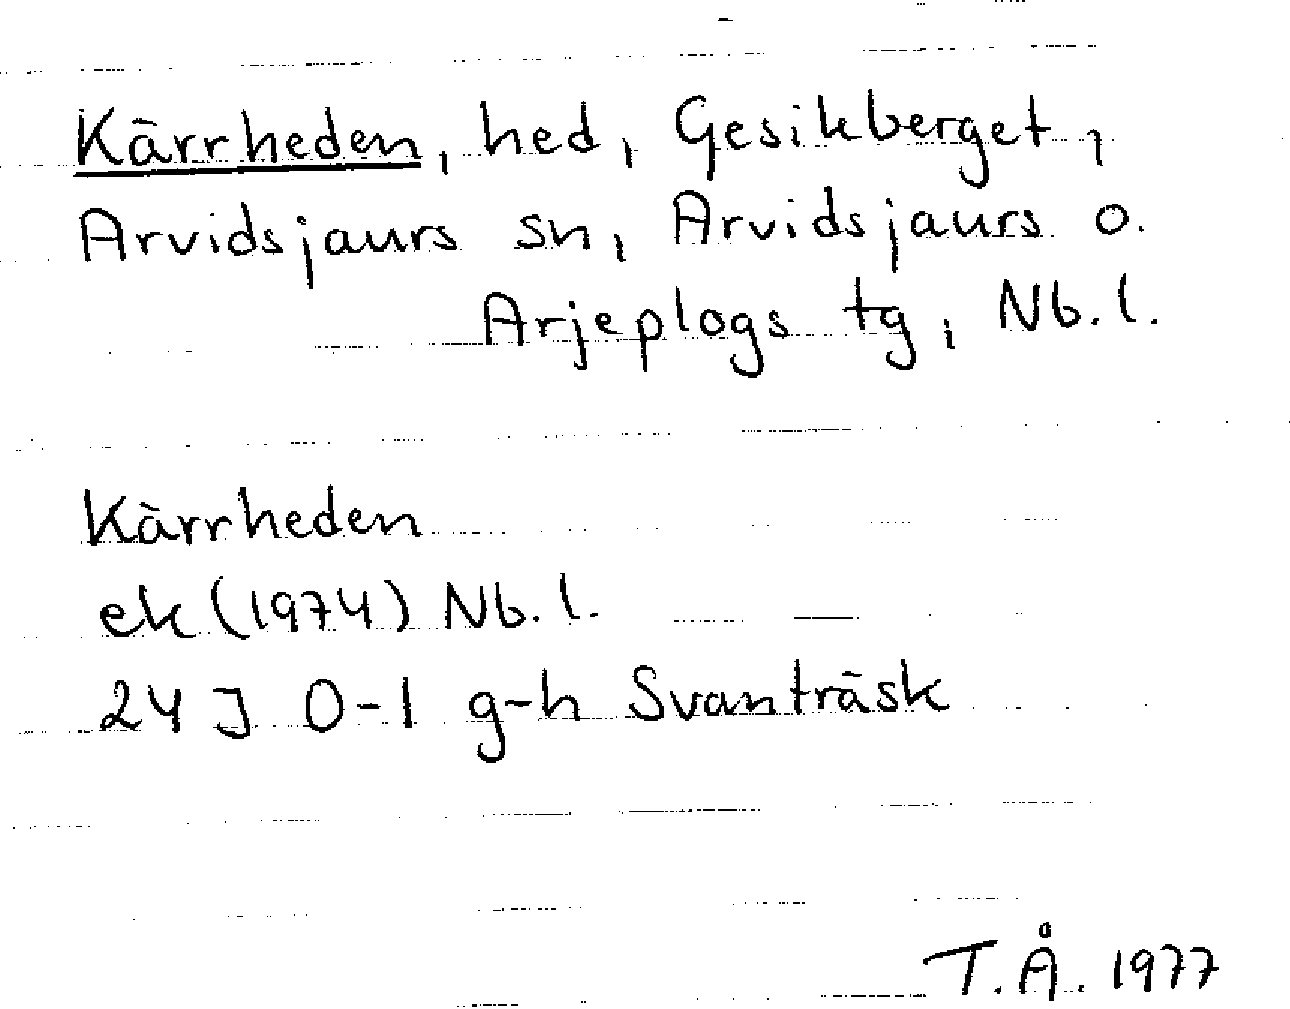 Kärrheden, hed, Gesikberget,
Arvidsjaurs sn, Arvidsjaurs o.
Arjeplogs tg, Nb. l.
Kärrheden
ek (1974) Nb. l.
24 J 0-1 g-h Svanträsk
T.Å. 1977